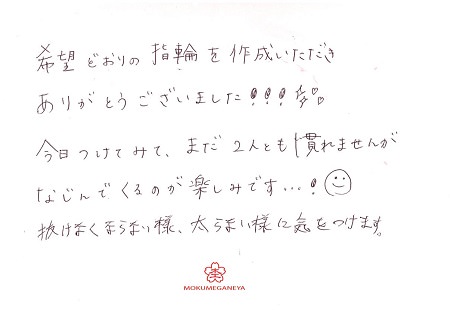 希望どおりの指輪を作成いただき
ありがとうございました!!!
今日つけてみて、まだ2人とも慣れませんが
なじんでくるのが楽しみです…!
抜けなくならない様、太らない様に気をつけます。
MOKUMEGANEYA